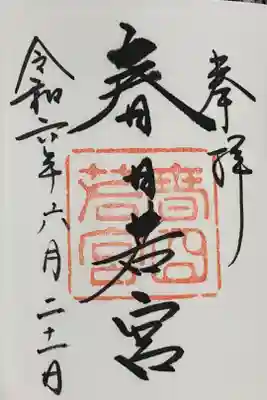 奉拝
春日若宮
春日若宮
令和六年六月二十一日